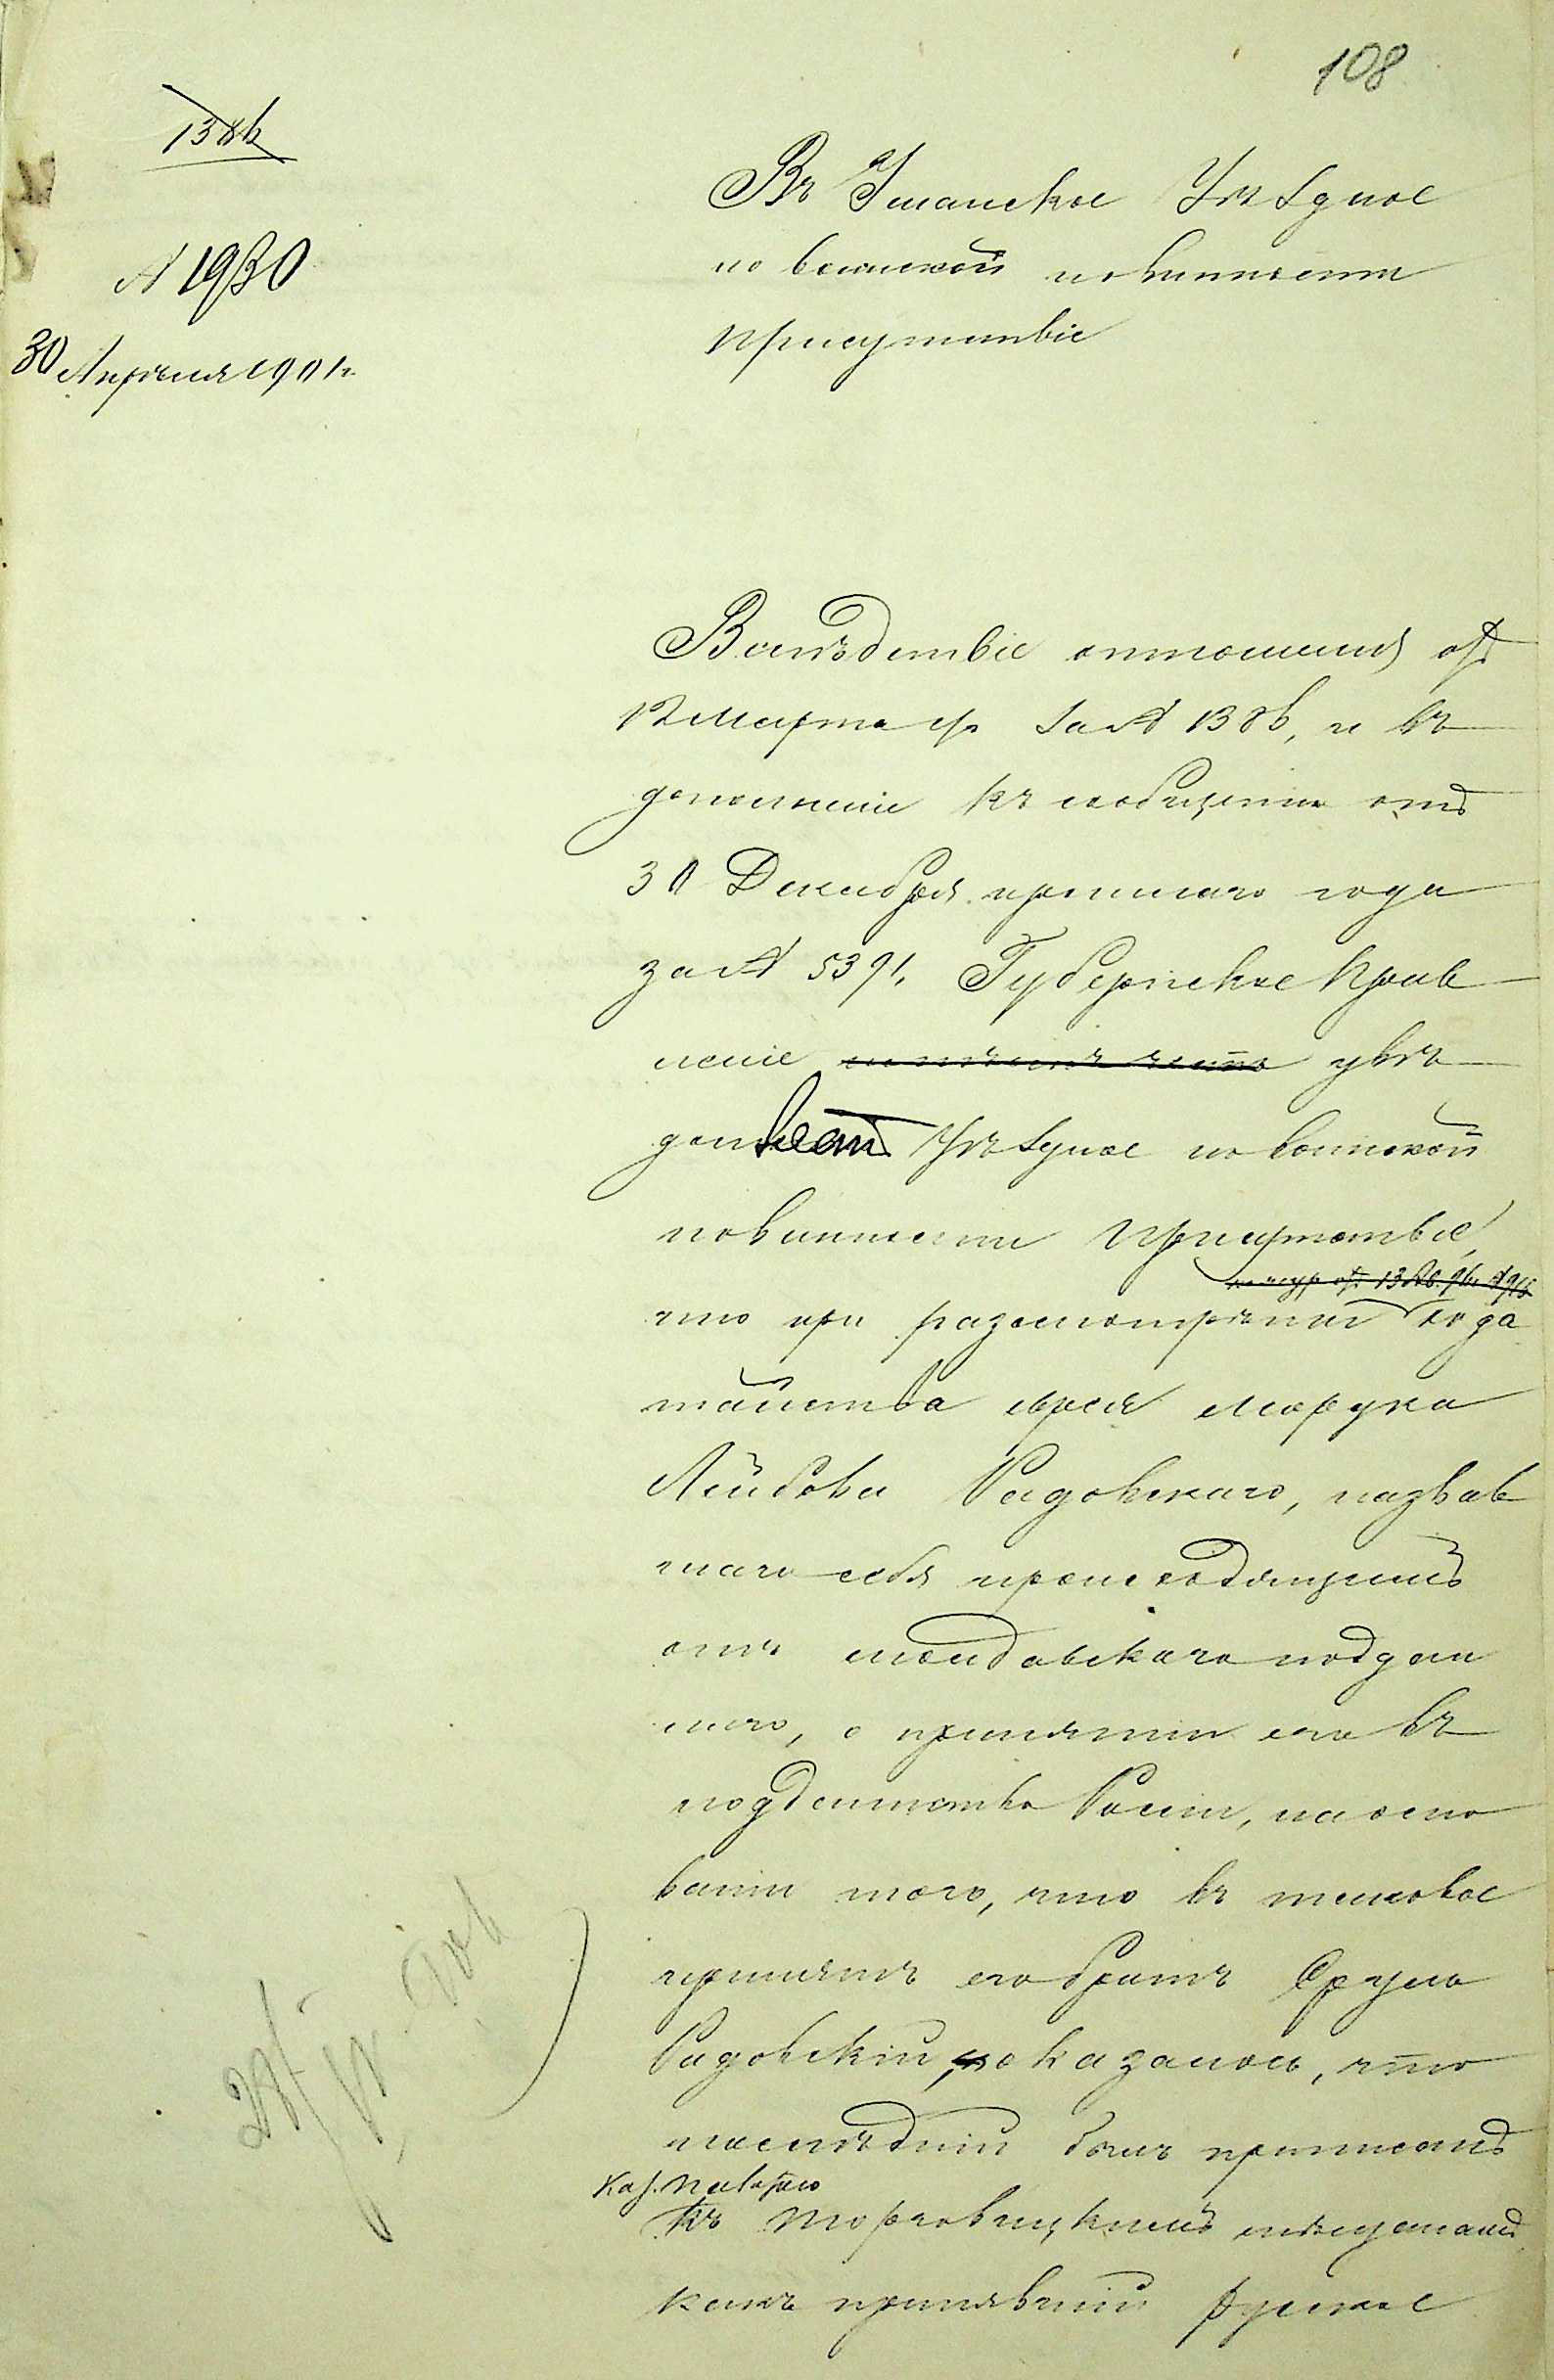 108
1386
№ 1930
30 Апрѣля 1901 г.
Въ Уманское Уѣздное
по воинской повинности
присутствіе
Вслѣдствіе отношенія отъ
12 Марта с/г за № 1386, и въ
дополненіе къ сообщенію отъ
30 Декабря прошлаго года
за № 5391, Губернское Прав
леніе увѣ
домляетъ Уѣздное по воинской
повинности Присутствіе,
что при разсмотрѣніи хода
тайства еврея Мордка
Лейбова Радовскаго, назвав
шаго себя происходящимъ
отъ молдавскаго поддан
наго, о принятіи его въ
подданство Россіи, на осно
ваніи того, что въ таковое
принятъ его братъ Сруль
Радовскій, оказалось, что
послѣдній былъ приписанъ
Каз. Палатою
къ Торговицкимъ мѣщанамъ
какъ принявшій русское